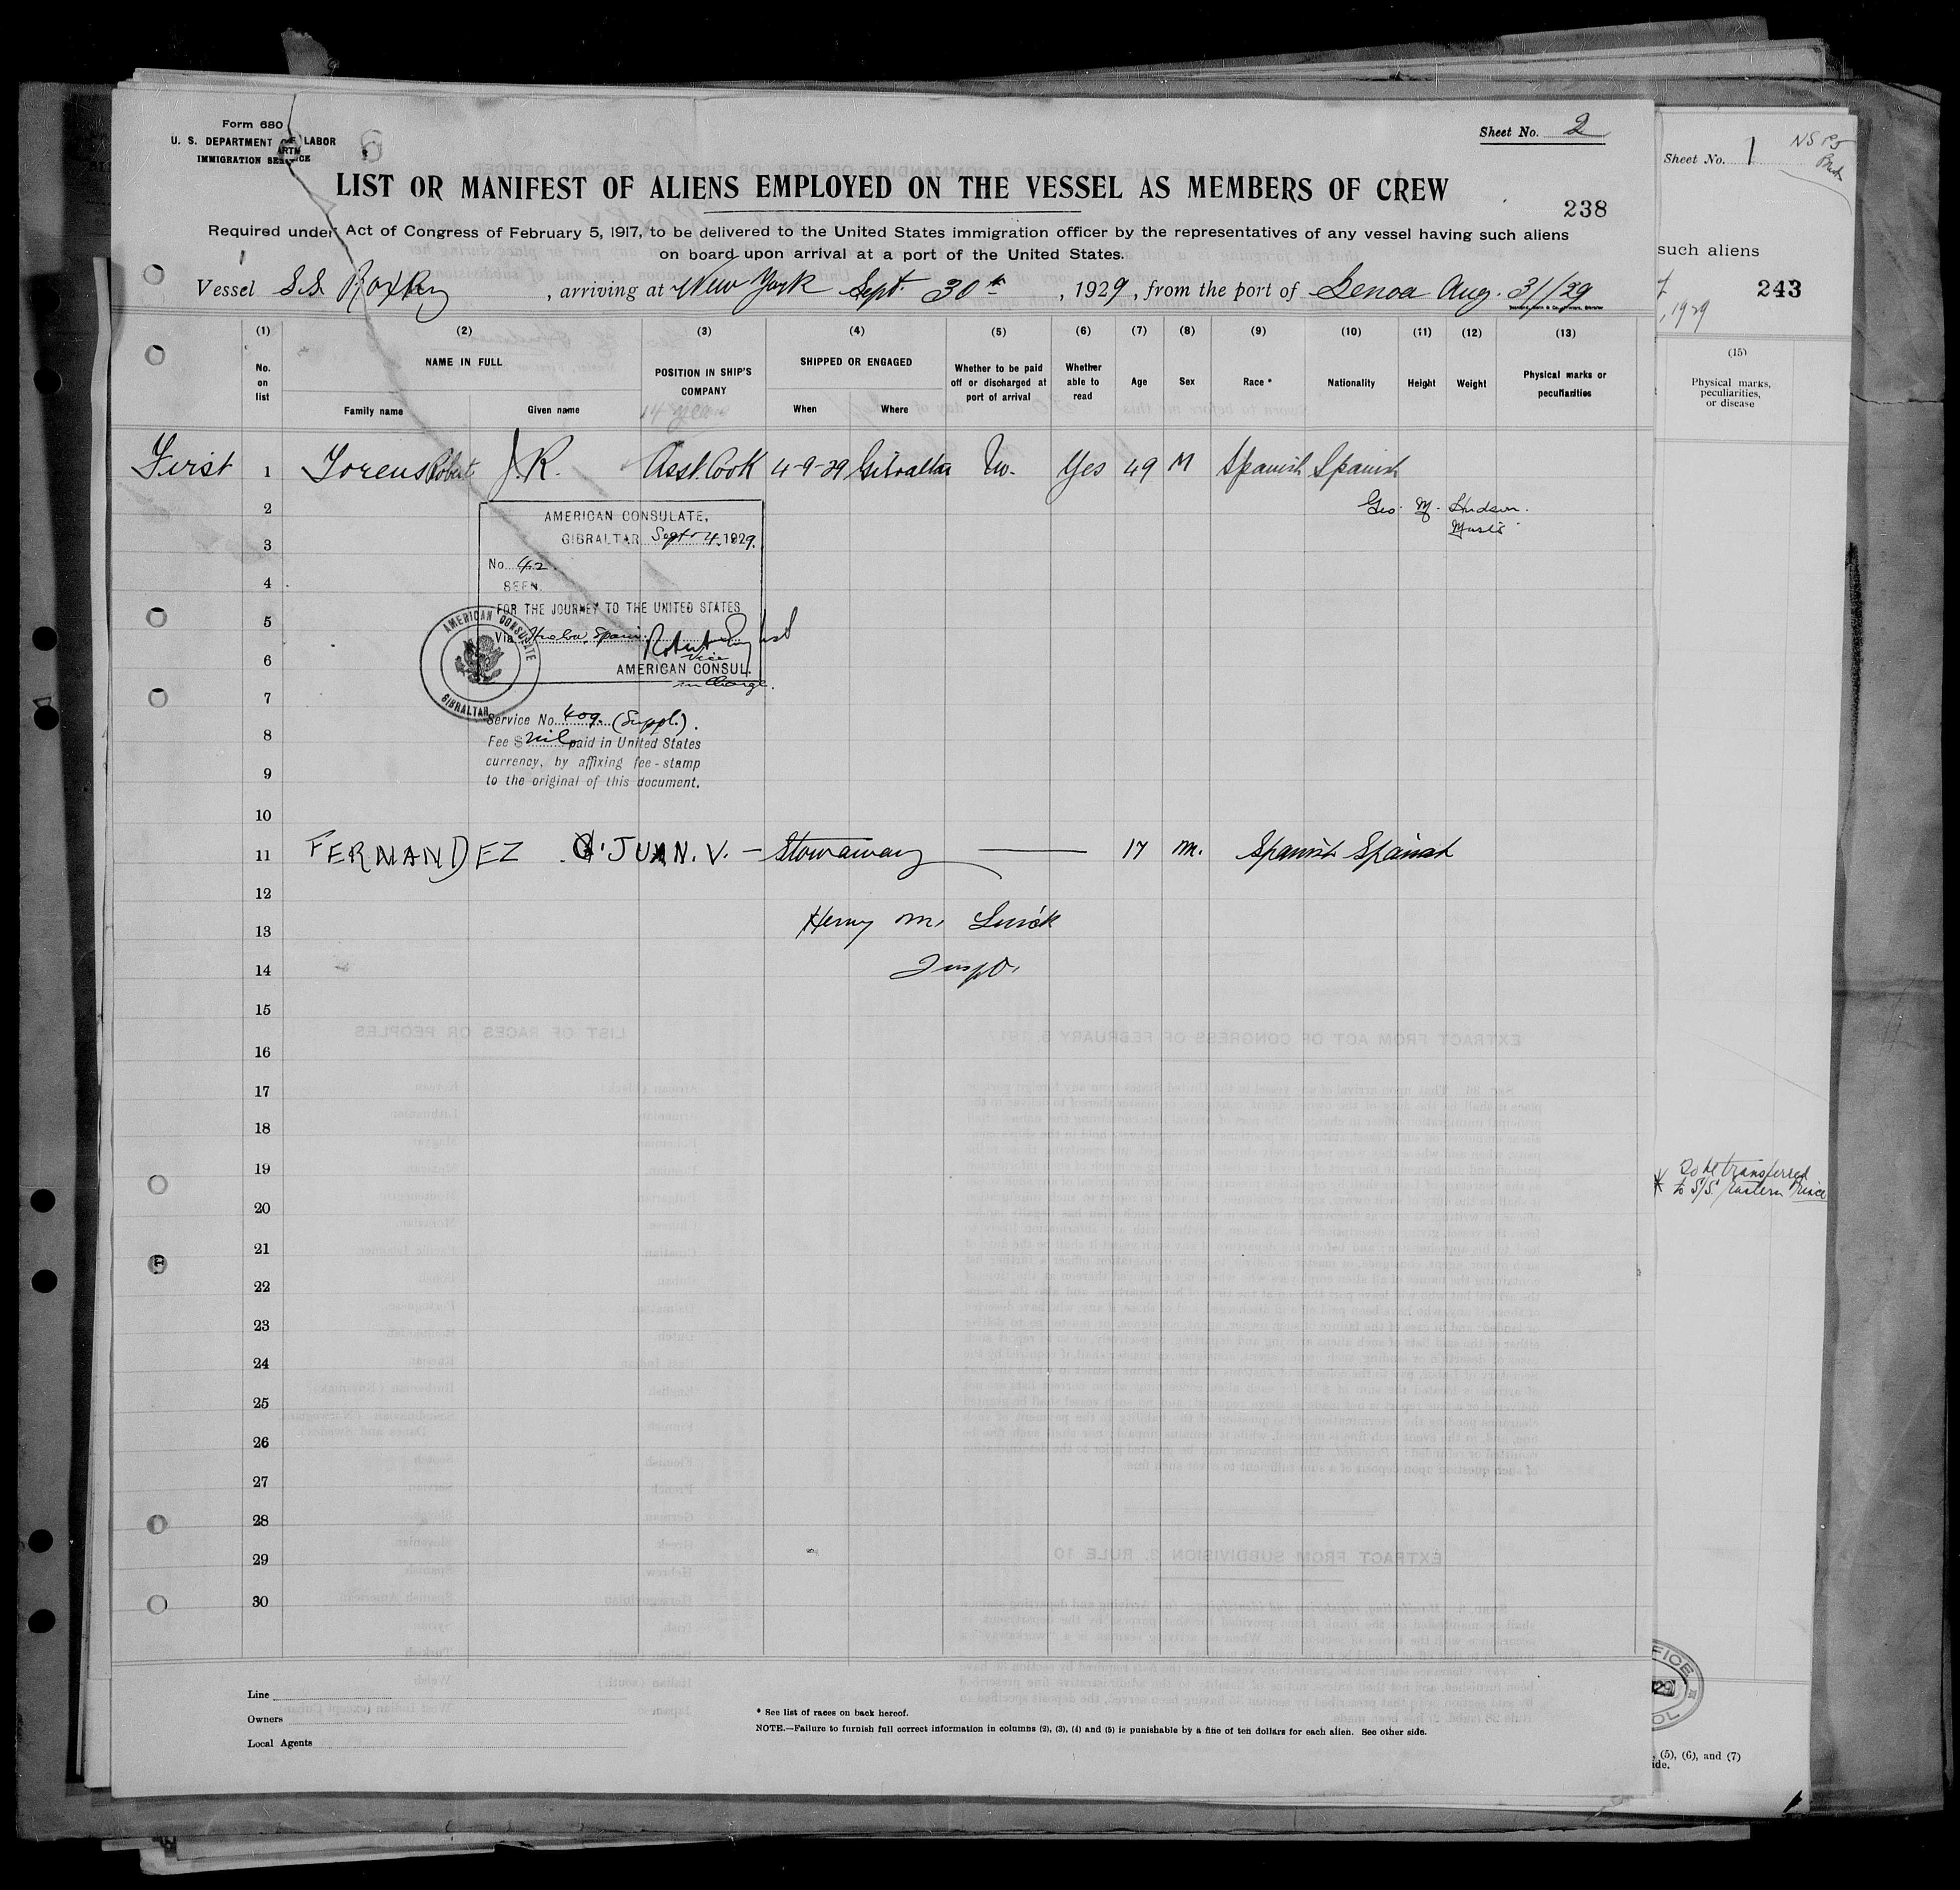 Form 680
U. S. DEPARTMENT OF LABOR
IMMIGRATION SERVICE
Sheet No. 2
LIST OR MANIFEST OF ALIENS EMPLOYED ON THE VESSEL AS MEMBERS OF CREW
238
Required under Act of Congress of February 5, 1917, to be delivered to the United States immigration officer by the representatives of any vessel having such aliens
on board upon arrival at a port of the United States.
Vessel S.S. , arriving at New York Sept. 30th , 1929, from the port of Genoa Aug. 31/29
(1) (2) (3) (4) (5) (6) (7) (8) (9) (10) (11) (12) (13)
No. on list
NAME IN FULL
Family name
Given name
POSITION IN SHIP'S COMPANY
SHIPPED OR ENGAGED
When
Where
Whether to be paid off or discharged at port of arrival
Whether able to read
Age
Sex
Race *
Nationality
Height
Weight
Physical marks or peculiarities
14 years
First 1 J.R. Asst. Cook 4-9-29 Gibraltar No. Yes 49 M Spanish Spanish
2 Geo. M. Hudson.
AMERICAN CONSULATE,
3
GIBRALTAR Sept 4. 1929.
No. 42.
4
SEEN.
FOR THE JOURNEY TO THE UNITED STATES
5
Via Huelva, Spain.
6
Vice
AMERICAN CONSUL.
in Charge.
AMERICAN CONSULATE
GIBRALTAR
7
Service No. 409. (Suppl.).
8
Fee $ nil paid in United States
currency, by affixing fee-stamp
9
to the original of this document.
10
11 FERNANDEZ JUAN. V. — Stowaway — 17 m. Spanish Spanish
12
13 Henry M.
14 Inspr.
15
16
17
18
19
20
21
22
23
24
25
26
27
28
29
30
Line
Owners
Local Agents
* See list of races on back hereof.
NOTE.—Failure to furnish full correct information in columns (2), (3), (4) and (5) is punishable by a fine of ten dollars for each alien. See other side.
Sheet No. 1
such aliens
243
, 1929
(15)
Physical marks,
peculiarities,
or disease
* To be transferred
to S/S. Eastern Prince
, (5), (6), and (7)
ide.